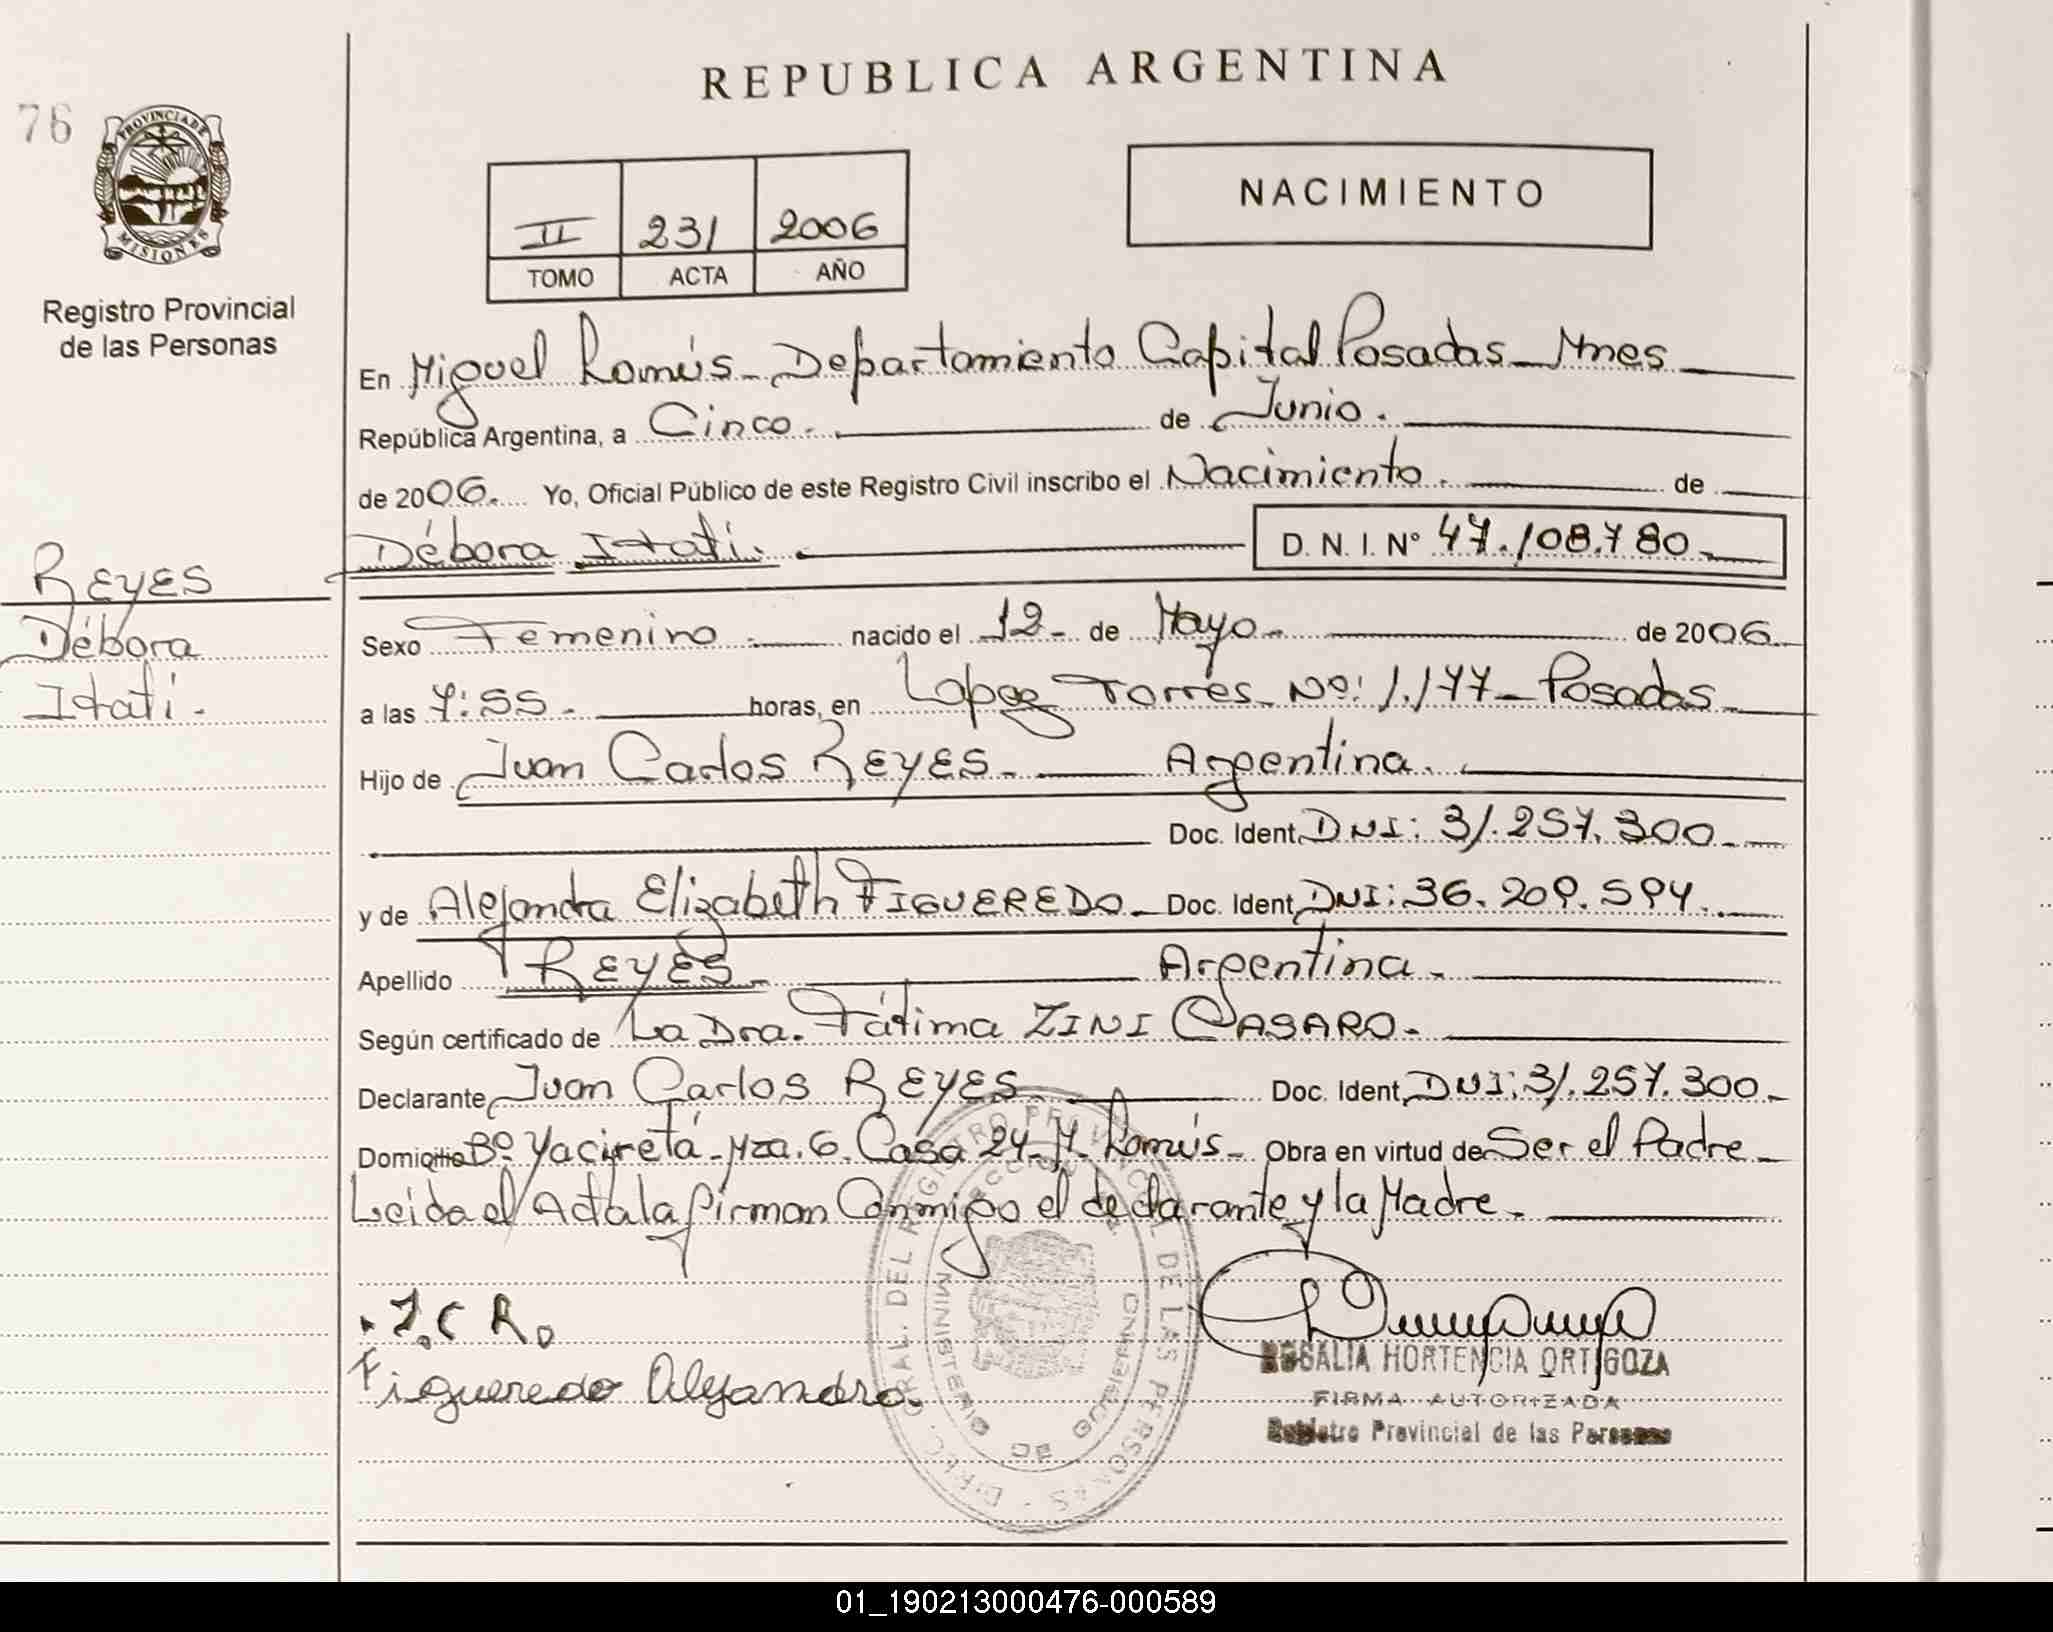 REPUBLICA ARGENTINA
76
PROVINCIA DE
MISIONES
Registro Provincial
de las Personas
II 231 2006
TOMO ACTA AÑO
NACIMIENTO
En Miguel Lanús - Departamiento Capital Posadas - Mnes
República Argentina, a Cinco. de Junio.
de 2006. Yo, Oficial Público de este Registro Civil inscribo el Nacimiento. de
Débora Itati. D. N. I. Nº 47.108.780
REYES
Débora
Itati.
Sexo Femenino. nacido el 12 de Mayo de 2006
a las 7:55 horas, en Lopez Torres Nº: 1.177 - Posadas
Hijo de Juan Carlos REYES - Argentina.
Doc. Ident. DNI: 31.257.300
y de Alejandra Elizabeth FIGUEREDO - Doc. Ident. DNI: 36.209.594.
Apellido REYES - Argentina -
Según certificado de La Dra. Fátima ZINI CASARO -
Declarante Juan Carlos REYES - Doc. Ident. DNI: 31.257.300 -
Domicilio Bº Yaciretá - Mza. 6. Casa 24 - M. Lanús - Obra en virtud de Ser el Padre -
Leida el Acta la firman Conmigo el declarante y la Madre -
. J.C R.
Figueredo Alejandra.
DIREC. GRAL. DEL REGISTRO PROVINCIAL DE LAS PERSONAS
MINISTERIO DE GOBIERNO
ROSALIA HORTENCIA ORTIGOZA
FIRMA AUTORIZADA
Registro Provincial de las Personas
01_190213000476-000589